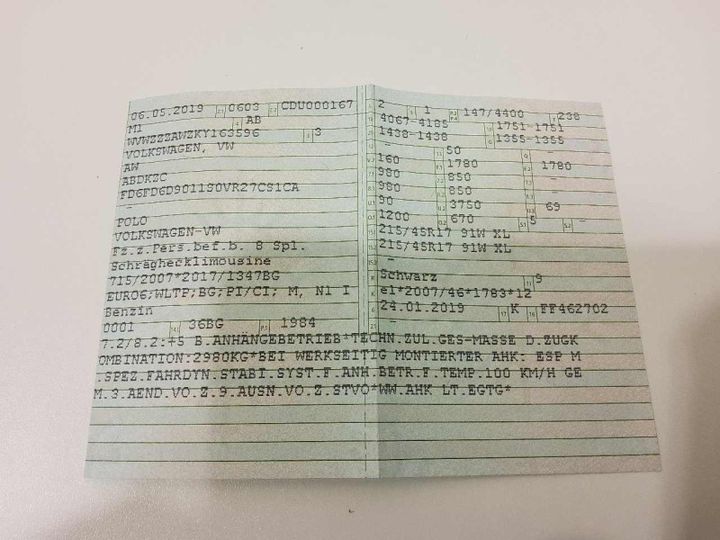 06.05.2019 0603 CDU000167
M1 AB
WVWZZZAWZKY163596 3
VOLKSWAGEN, VW
AW
ABDKZC
FD6FD6D9011S0VR27CS1CA
-
POLO
VOLKSWAGEN-VW
Fz.z.Pers.bef.b. 8 Spl.
Schräghecklimousine
715/2007*2017/1347BG
EURO6;WLTP;BG;PI/CI; M, N1 I
Benzin
0001 36BG 1984
2 1 147/4400 238
4067-4185 1751-1751
1438-1438 1355-1355
- 50 -
160 1780 1780
980 850 -
980 850 -
90 3750 69
1200 670 5 -
215/45R17 91W XL
215/45R17 91W XL
-
Schwarz 9
e1*2007/46*1783*12
24.01.2019 K FF462702
7.2/8.2:+5 B.ANHÄNGEBETRIEB*TECHN.ZUL.GES-MASSE D.ZUGK
OMBINATION:2980KG*BEI WERKSEITIG MONTIERTER AHK: ESP M
.SPEZ.FAHRDYN.STABI.SYST.F.ANH.BETR.F.TEMP.100 KM/H GE
M.3.AEND.VO.Z.9.AUSN.VO.Z.STVO*WW.AHK LT.EGTG*